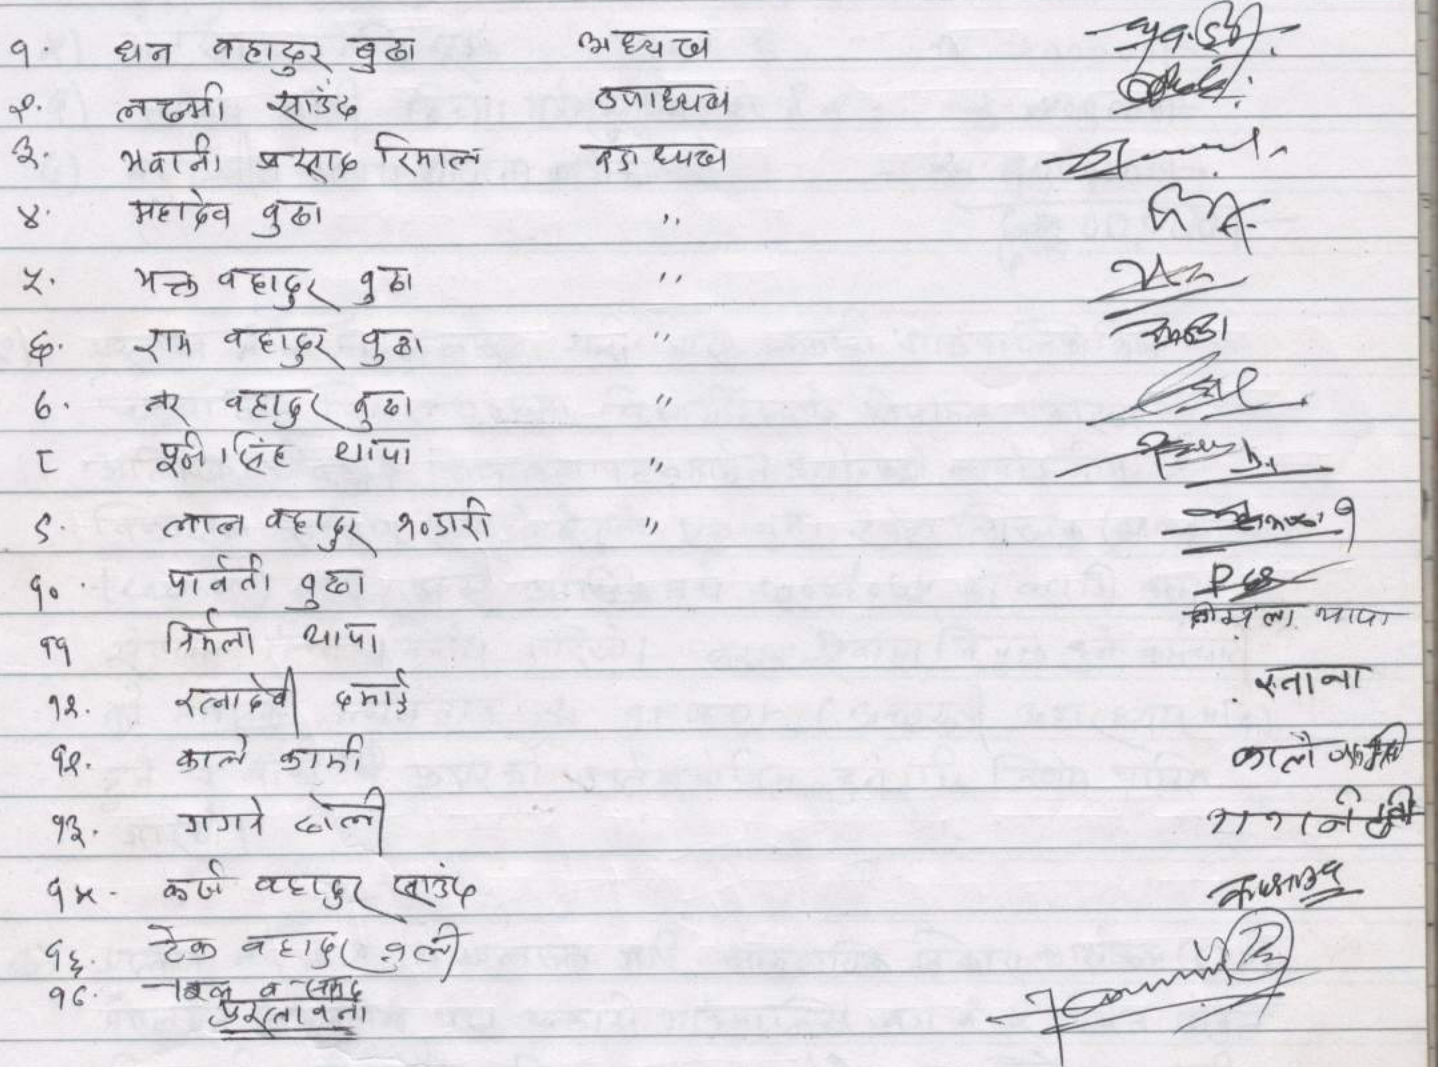 १. धन बहादुर बुढा अध्यक्ष
२. लक्ष्मी साउंद उपाध्यक्ष
३. भवानी प्रसाद रिमाल वडाध्यक्ष
४. महादेव बुढा "
५. भक्त बहादुर बुढा "
६. राम बहादुर बुढा "
७. नर बहादुर बुढा "
८ सिंह थापा "
९. लाल बहादुर भण्डारी "
१०. पार्वती बुढा
११ निर्मला थापा निर्मला थापा
१२. रत्नादेवी दमाई रत्ना
१२. काले कामी काले
१३. गगने ढोली
१५. कर्ण बहादुर साउंद
१६. टेक बहादुर
१८.
प्रस्तावना